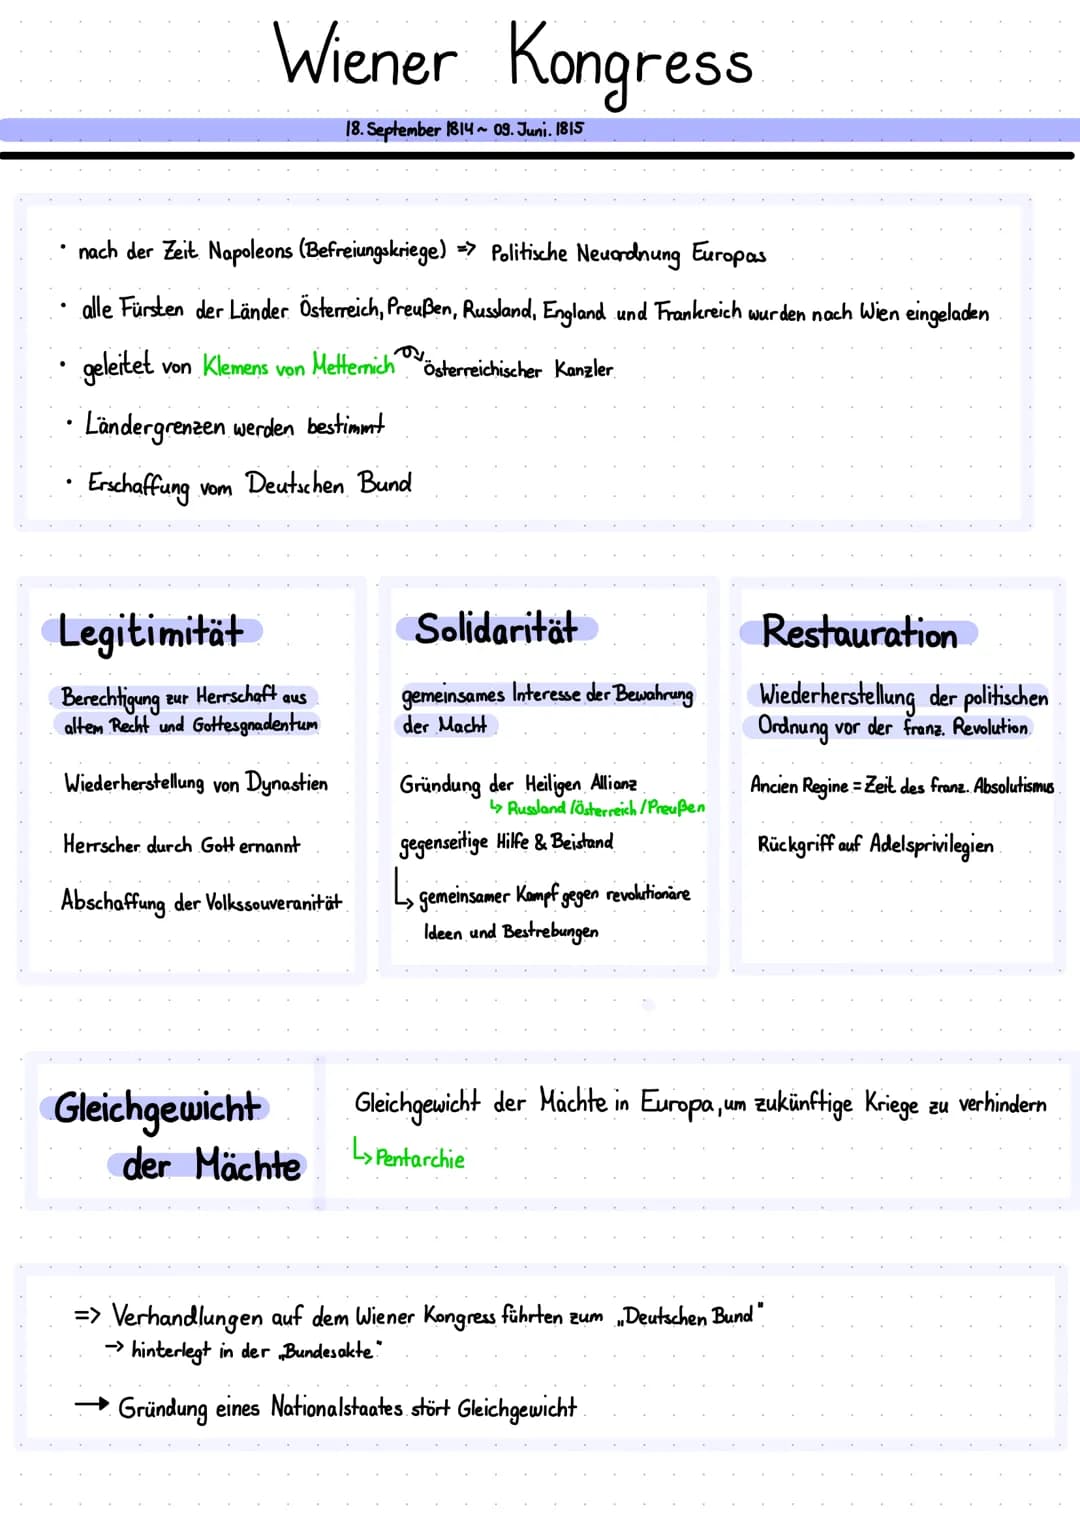 Wiener Kongress
18. September 1814 ~ 09. Juni. 1815
• nach der Zeit Napoleons (Befreiungskriege) => Politische Neuordnung Europas
• alle Fürsten der Länder Österreich, Preußen, Russland, England und Frankreich wurden nach Wien eingeladen
• geleitet von Klemens von Metternich Österreichischer Kanzler
• Ländergrenzen werden bestimmt
• Erschaffung vom Deutschen Bund
Legitimität
Berechtigung zur Herrschaft aus
altem Recht und Gottesgnadentum
Wiederherstellung von Dynastien
Herrscher durch Gott ernannt
Abschaffung der Volkssouveranität
Solidarität
gemeinsames Interesse der Bewahrung
der Macht
Gründung der Heiligen Allianz
↳ Russland /Österreich /Preußen
gegenseitige Hilfe & Beistand
↳ gemeinsamer Kampf gegen revolutionäre
Ideen und Bestrebungen
Restauration
Wiederherstellung der politischen
Ordnung vor der franz. Revolution
Ancien Regine = Zeit des franz. Absolutismus
Rückgriff auf Adelsprivilegien
Gleichgewicht
der Mächte
Gleichgewicht der Mächte in Europa, um zukünftige Kriege zu verhindern
↳ Pentarchie
=> Verhandlungen auf dem Wiener Kongress führten zum „Deutschen Bund"
→ hinterlegt in der „Bundesakte"
→ Gründung eines Nationalstaates stört Gleichgewicht